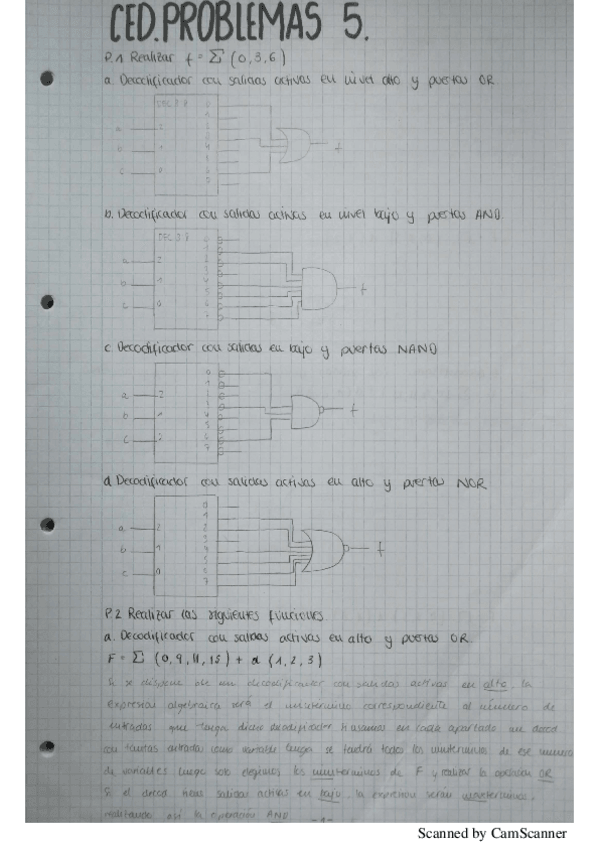 CED.PROBLEMAS 5.
P.1 Realizar f = Σ (0,3,6)
a. Decodificador con salidas activas en nivel alto y puertas OR
DEC 3 8
a 2
b 1
c 0
f
b. Decodificador con salidas activas en nivel bajo y puertas AND.
DEC 3 8
a 2
b 1
c 0
f
c. Decodificador con salidas en bajo y puertas NAND
a 2
b 1
c
f
d. Decodificador con salidas activas en alto y puertas NOR
a 2
b 1
c 0
f
P.2 Realizar las siguientes funciones
a. Decodificador con salidas activas en alto y puertas OR.
F = Σ (0, 9, 11, 15) + d (1, 2, 3)
Si se dispone de un decodificador con salidas activas en alto, la
expresion algebraica será el minitermino correspondiente al número de
entradas que tenga dicho decodificador
con tantas entradas como variable tenga se tendrá todos los
de variables luego solo elegimos los miniterminos de F y realizar la operación OR
Si el deco tiene salidas activas en bajo, la
realizando así la operación AND
-1-
Scanned by CamScanner